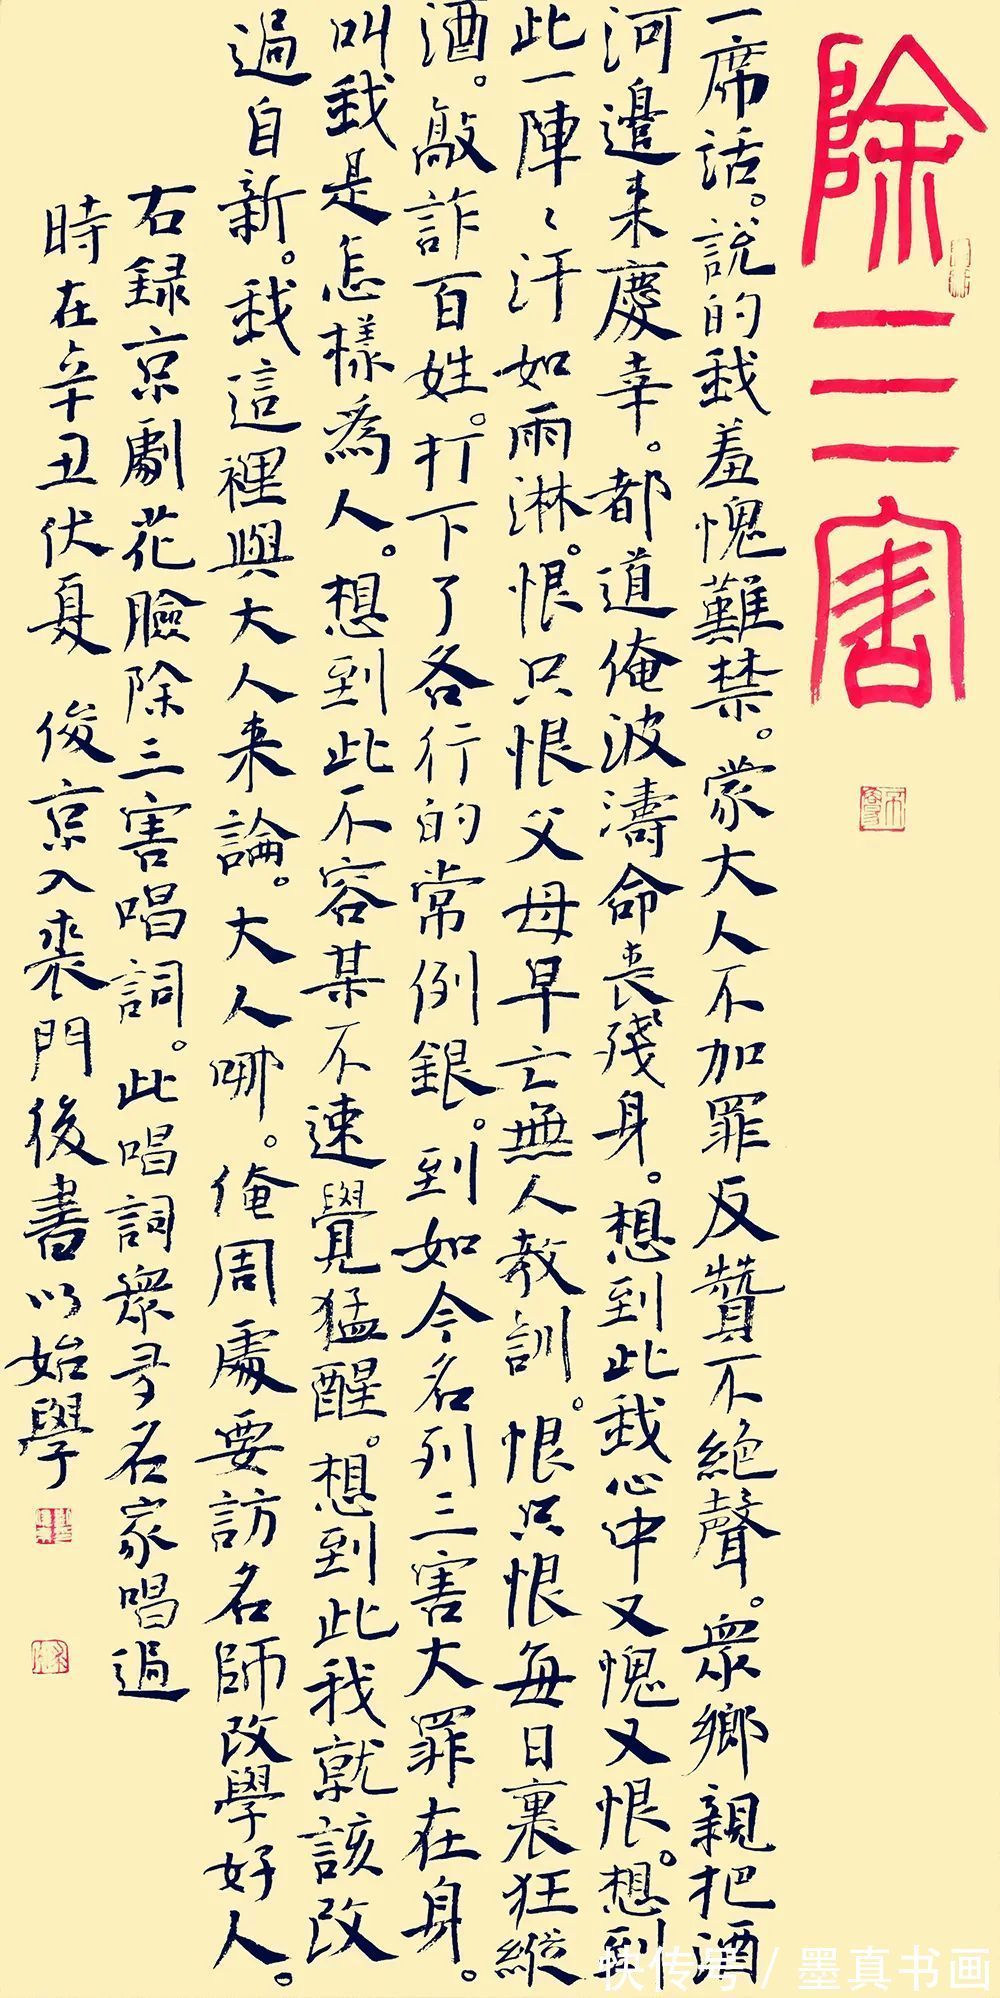 除三害
一席話。說的我羞愧難禁。蒙大人不加罪反贊不絕聲。衆鄉親把酒
河邊来慶幸。都道俺波濤命喪殘身。想到此我心中又愧又恨。想到
此一陣〻汗如雨淋。恨只恨父母早亡無人教訓。恨只恨每日裏狂縱
酒。敲詐百姓。打下了各行的常例銀。到如今名列三害大罪在身。
叫我是怎樣爲人。想到此不容某不速覺猛醒。想到此我就該改
過自新。我這裡與大人来論。大人哪。俺周處要訪名師改學好人。
右録京劇花臉除三害唱詞。此唱詞衆多名家唱過
時在辛丑伏夏 俊京入裘門後書以始學
快传号 / 墨真书画